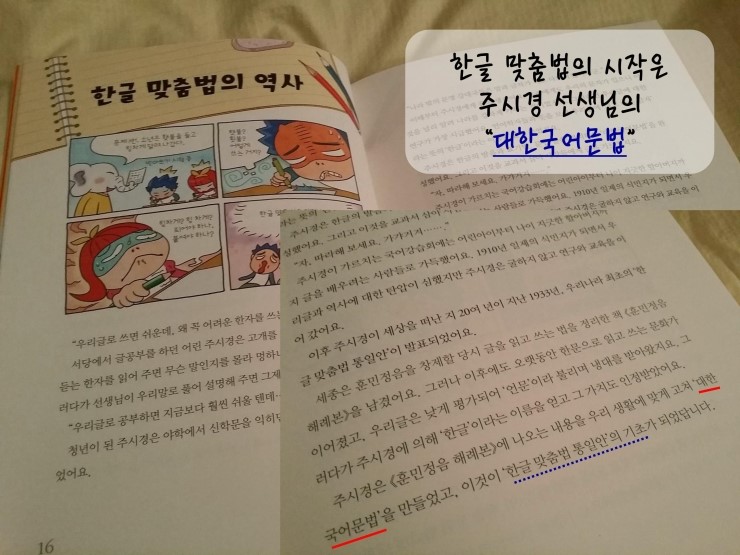 한글 맞춤법의 시작은
주시경 선생님의
"대한국어문법"
한글 맞춤법의 역사
"우리글로 쓰면 쉬운데, 왜 꼭 어려운 한자를 쓰는
서당에서 글공부를 하던 어린 주시경은 고개를
듣는 한자를 읽어 주면 무슨 말인지를 몰라 멍하니
러다가 선생님이 우리말로 풀어 설명해 주면 그제
"우리글로 공부하면 지금보다 훨씬 쉬울 텐데
청년이 된 주시경은 야학에서 신학문을 익히던
었어요.
16
주시경은 한글의
했어요. 그리고 이것을 교과서 삼아
"자, 따라해 보세요. 가갸거겨……."
주시경이 가르치는 국어강습회에는 어린아이부터 나이 지긋한 할아버지까
지 글을 배우려는 사람들로 가득했어요. 1910년 일제의 식민지가 되면서 우
리글과 역사에 대한 탄압이 심했지만 주시경은 굴하지 않고 연구와 교육을 이
어 갔어요.
이후 주시경이 세상을 떠난 지 20여 년이 지난 1933년, 우리나라 최초의 '한
글 맞춤법 통일안'이 발표되었어요.
세종은 훈민정음을 창제할 당시 글을 읽고 쓰는 법을 정리한 책 《훈민정음
해례본》을 남겼어요. 그러나 이후에도 오랫동안 한문으로 읽고 쓰는 문화가
이어졌고, 우리글은 낮게 평가되어 '언문'이라 불리며 냉대를 받아왔지요. 그
러다가 주시경에 의해 '한글'이라는 이름을 얻고 그 가치도 인정받았어요.
주시경은 《훈민정음 해례본》에 나오는 내용을 우리 생활에 맞게 고쳐 '대한
국어문법'을 만들었고, 이것이 '한글 맞춤법 통일안'의 기초가 되었답니다.